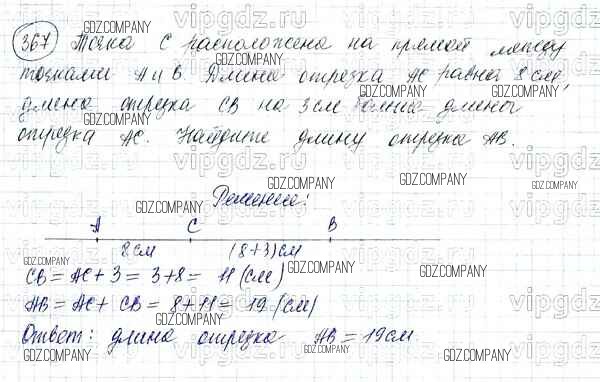 367 Точка С расположена на прямой между
точками А и В. Длина отрезка АС равна 8 см,
длина отрезка СВ на 3 см больше длины
отрезка АС. Найдите длину отрезка АВ.
Решение:
А С В
8 см (8+3) см
СВ = АС + 3 = 3+8 = 11 (см)
АВ = АС + СВ = 8+11 = 19 (см)
Ответ: длина отрезка АВ = 19 см
vipgdz.ru
GDZ.COMPANY